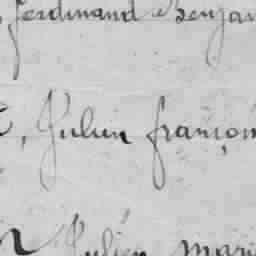 Ferdinand Benjam
, Julien françois
Julien Mari